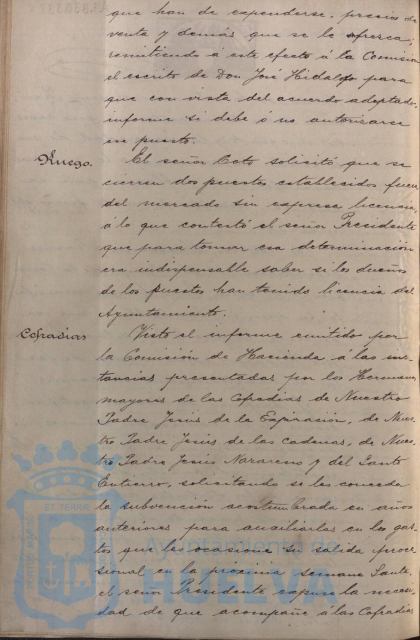 que han de expenderse, precios de
venta y demás que se le ofrezca;
remitiendo á este efecto á la Comisión
el escrito de Don José Hidalgo para
que con vista del acuerdo adoptado,
informe si debe ó no autorizarse
su puesto.
Ruego.
El señor Coto solicitó que se
cierren dos puestos establecidos fuera
del mercado sin expresa licencia,
á lo que contestó el señor Presidente
que para tomar esa determinación
era indispensable saber si los dueños
de los puestos han tenido licencia del
Ayuntamiento.
Cofradias
Visto el informe emitido por
la Comisión de Hacienda á las ins-
tancias presentadas por los Hermanos
mayores de las Cofradias de Nuestro
Padre Jesús de la Expiración, de Nues-
tro Padre Jesús de las cadenas, de Nues-
tro Padre Jesús Nazareno y del Santo
Entierro, solicitando se les conceda
la subvención acostumbrada en años
anteriores para auxiliarlas en los gas-
tos que les ocasione su salida proce-
sional en la próxima Semana Santa,
el señor Presidente expuso la necesi-
dad de que acompañe á las Cofradias
Ayuntamiento de
HUELVA